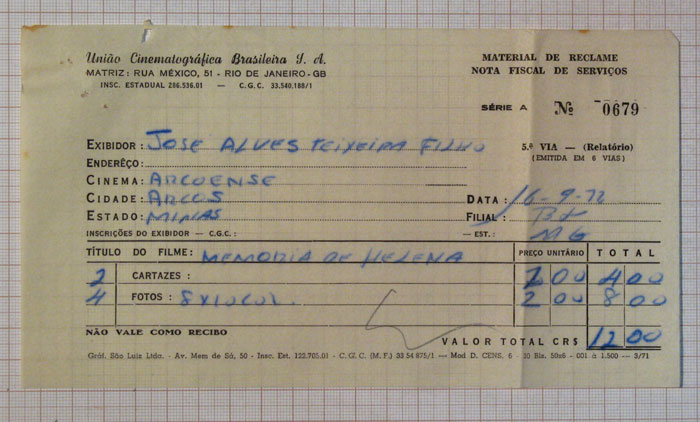 União Cinematográfica Brasileira S. A.
MATRIZ: RUA MÉXICO, 51 - RIO DE JANEIRO-GB
INSC. ESTADUAL 286.536.01 — C.G.C. 33.540.188/1
MATERIAL DE RECLAME
NOTA FISCAL DE SERVIÇOS
SÉRIE A Nº 0679
EXIBIDOR: JOSE ALVES TEIXEIRA FILHO
5.ª VIA — (Relatório)
(EMITIDA EM 6 VIAS)
ENDERÊÇO:
CINEMA: ARCOENSE
CIDADE: ARCOS DATA: 16-9-72
ESTADO: MINAS FILIAL: BH
INSCRIÇÕES DO EXIBIDOR — C.G.C.: — EST.: MG
TÍTULO DO FILME: MEMORIA DE HELENA PREÇO UNITÁRIO TOTAL
2 CARTAZES: 2 00 4 00
4 FOTOS: 8X10COL. 2 00 8 00
NÃO VALE COMO RECIBO VALOR TOTAL CR$ 12 00
Gráf. São Luiz Ltda. - Av. Mem de Sá, 50 - Insc. Est. 122.705.01 - C.G.C. (M.F.) 33 54 875/1 — Mod D. CENS. 6 - 30 Bls. 50x6 - 001 à 1.500 — 3/71